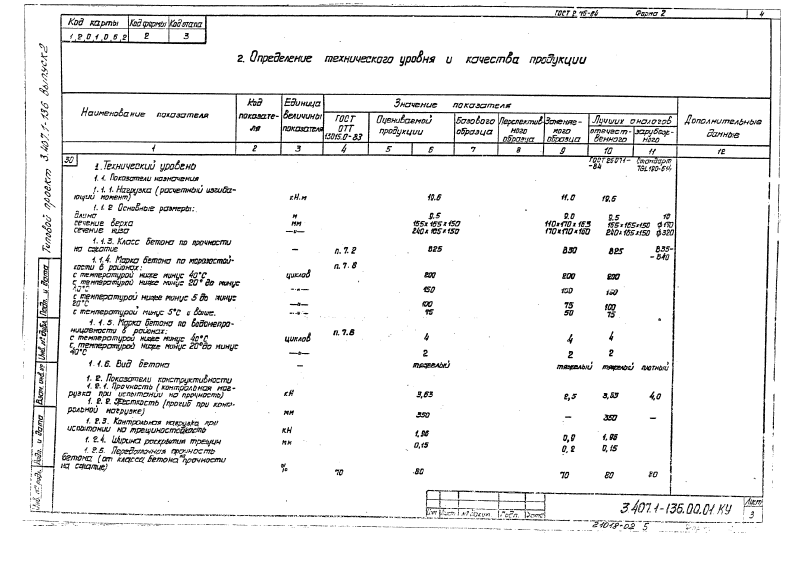 ГОСТ 2.116-84 Форма 2 4
Код карты Код формы Код этапа
1,2,0,1,0,6,2 2 3
2. Определение технического уровня и качества продукции
Типовой проект 3.407.1-136 выпуск 2
Наименование показателя
Код показате-ля
Единица величины показателя
Значение показателя
ГОСТ ОТТ 13015.0-83
Оцениваемой продукции
Базового образца
Перспектив-ного образца
Заменяе-мого образца
Лучших аналогов
отечест-венного
зарубеж-ного
Дополнительные данные
1 2 3 4 5 6 7 8 9 10 11 12
30
1. Технический уровень ГОСТ 26071-84 Стандарт
1.1. Показатели назначения
1.1.1. Нагрузка (расчетный изгиба-
ющий момент) кН.м 19.6 11.0 19.6
1.1.2 Основные размеры:
длина м 9.5 9.0 9.5 10
сечение верха мм 165×165×150 165×165×150 ф170
сечение низа —"— 240×165×150 170×170×180 240×165×150 ф320
1.1.3. Класс бетона по прочности
на сжатие — п. 7.2 В25 В30 В25 В35-
-В40
1.1.4. Марка бетона по морозостой- п. 7.6
кости в районах:
с температурой ниже минус 40°С циклов 200 200 200
с температурой ниже минус 20° до минус
40°С —"— 150 150 150
с температурой ниже минус 5 до минус
20°С —"— 100 75 100
с температурой минус 5°С и выше. —"— 75 50 75
1.1.5. Марка бетона по водонепро-
ницаемости в районах: п. 7.6
с температурой ниже минус 40°С циклов 4 4 4
с температурой ниже минус 20° до минус
40°С —"— 2 2 2
1.1.6. Вид бетона — тяжелый тяжелый тяжелый плотный
1.2. Показатели конструктивности
1.2.1. Прочность (контрольная наг-
рузка при испытании на прочность) кН 3,63 2,5 3,63 4,0
1.2.2. Жесткость (прогиб при конт-
рольной нагрузке) мм 350 — 350 —
1.2.3. Контрольная нагрузка при
испытании на трещиностойкость кН 1,96 1,96
1.2.4. Ширина раскрытия трещин мм 0,15 0,2 0,15
1.2.5. Передаточная прочность
бетона (от класса бетона по прочности
на сжатие) % 70 80 70 80 80
Взам. инв. №
Подп. и дата
Изм Лист № докум. Подп. Дата
3.407.1-136.00.01 КУ
Лист
3
21018-02 5